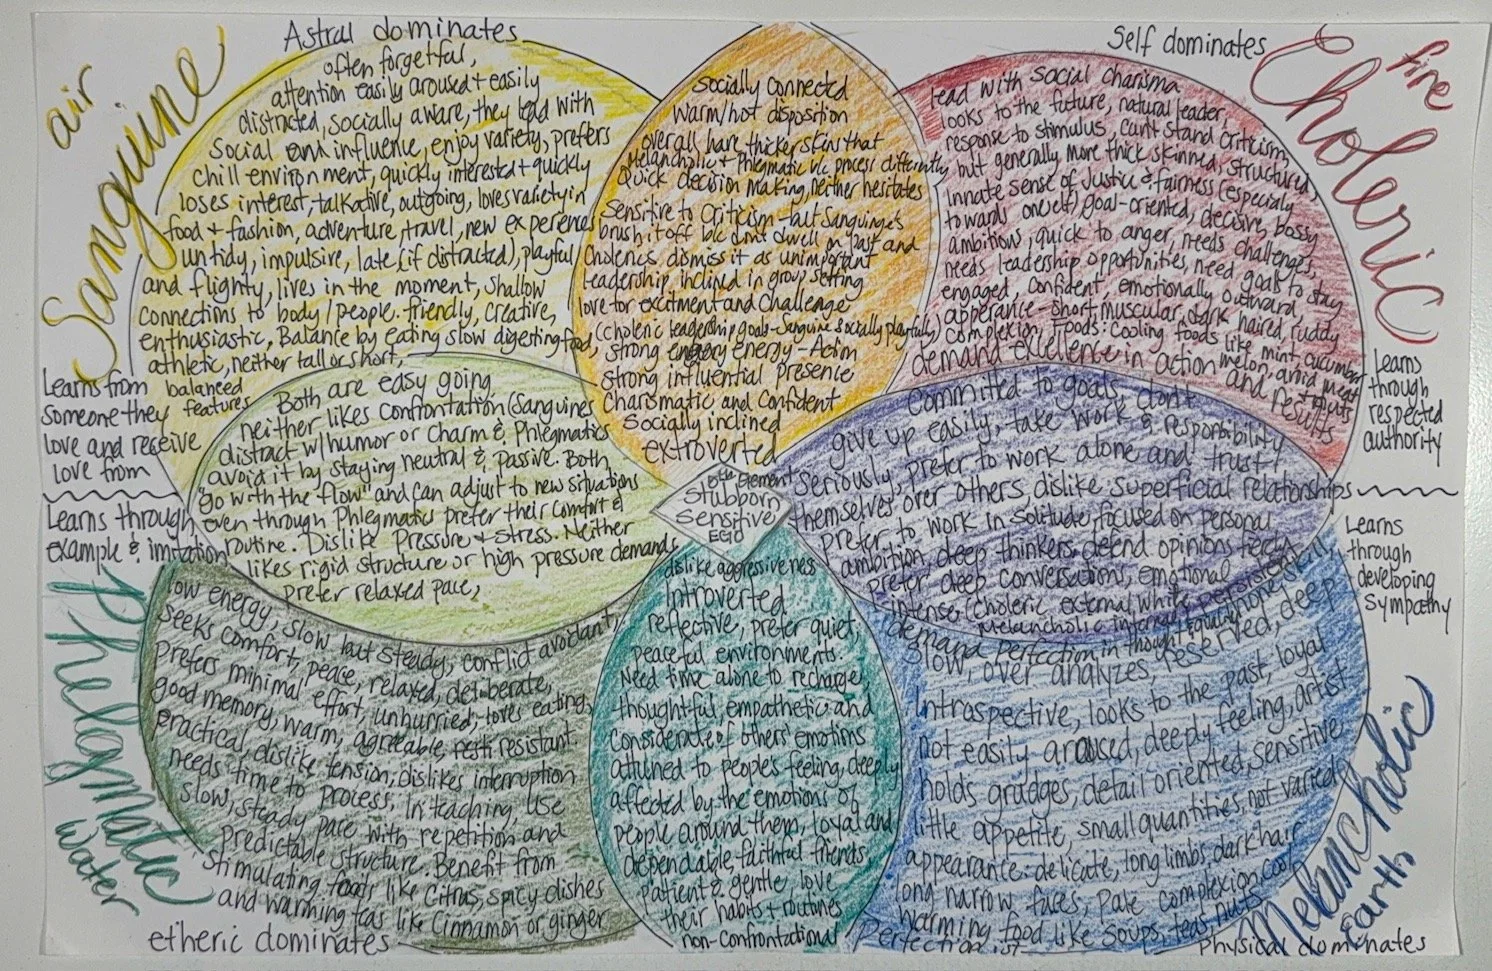 Astral dominates
air
Sanguine
often forgetful,
attention easily aroused + easily
distracted, socially aware, they lead with
social and influence, enjoy variety, prefers
chill environment, quickly interested + quickly
loses interest, talkative, outgoing, loves variety in
food + fashion, adventure, travel, new experiences
untidy, impulsive, late (if distracted), playful
and flighty, lives in the moment, shallow
connections to body/people. friendly, creative,
enthusiastic, Balance by eating slow digesting food,
athletic, neither tall or short,
balanced
features
Learns from
someone they
love and receive
love from
Socially connected
warm/hot disposition
overall have thicker skins that
Melancholic + Phlegmatic b/c process differently
Quick decision making, neither hesitates
Sensitive to criticism - but Sanguine's
brush it off b/c dont dwell on past and
cholerics dismiss it as unimportant
Leadership inclined in group setting
love for excitment and challenge
(choleric leadership goals - Sanguine socially playful)
strong energy -
strong influential presence
Charismatic and Confident
Socially inclined
extroverted
Self dominates
fire
Choleric
lead with social charisma
looks to the future, natural leader,
response to stimulus, can't stand criticism,
but generally more thick skinned, structured,
innate sense of Justice & fairness (especially
towards oneself) goal-oriented, decisive, bossy
ambitious, quick to anger, needs challenges,
needs leadership opportunities, need goals to stay
engaged, confident, emotionally outward,
apperance - short, muscular, dark haired, ruddy
complexion, Foods: cooling foods like mint, cucumber
melon, avoid meat
demand excellence in action and results
Learns
through
respected
authority
Both are easy going
neither likes confrontation (Sanguines
distract w/humor or charm & Phlegmatics
avoid it by staying neutral & passive. Both
"go with the flow" and can adjust to new situations
even through Phlegmatics prefer their comfort &
routine. Dislike Pressure + stress. Neither
likes rigid structure or high pressure demands
prefer relaxed pace,
Element
Stubborn
Sensitive
EGO
committed to goals, don't
give up easily, take work & responsibility
seriously, prefer to work alone and trust
themselves over others, dislike superficial relationships
prefer to work in solitude, focused on personal
ambition, deep thinkers, defend opinions
prefer deep conversations, emotional
intense (choleric external, while
Melancholic internal
Learns through
example & imitation
Phlegmatic
water
low energy, slow but steady, conflict avoidant,
seeks comfort, peace, relaxed, deliberate,
prefers minimal effort, unhurried, loves eating,
good memory, warm, agreeable, resistant.
practical, dislike tension, dislikes interruption
needs time to process, In teaching, use
slow, steady pace with repetition and
predictable structure. Benefit from
stimulating foods like citrus, spicy dishes
and warming teas like cinnamon or ginger
etheric dominates
dislike aggressiveness
Introverted
reflective, prefer quiet,
peaceful environments.
Need time alone to recharge
thoughtful, empathetic and
considerate of others' emotions
attuned to people's feeling, deeply
affected by the emotions of
people around them, loyal and
dependable, faithful friends,
Patient & gentle, love
their habits + routines
non-confrontational
Learns
through
developing
sympathy
demand perfection in thought
slow, over analyzes, reserved, deep
Introspective, looks to the past, loyal
not easily aroused, deeply feeling, artist
holds grudges, detail oriented, sensitive
little appetite, small quantities, not varied
appearance: delicate, long limbs, dark hair
long narrow faces, pale complexion, cook
warming food like soups, teas, nuts
Perfectionist
Melancholic
earth
Physical dominates